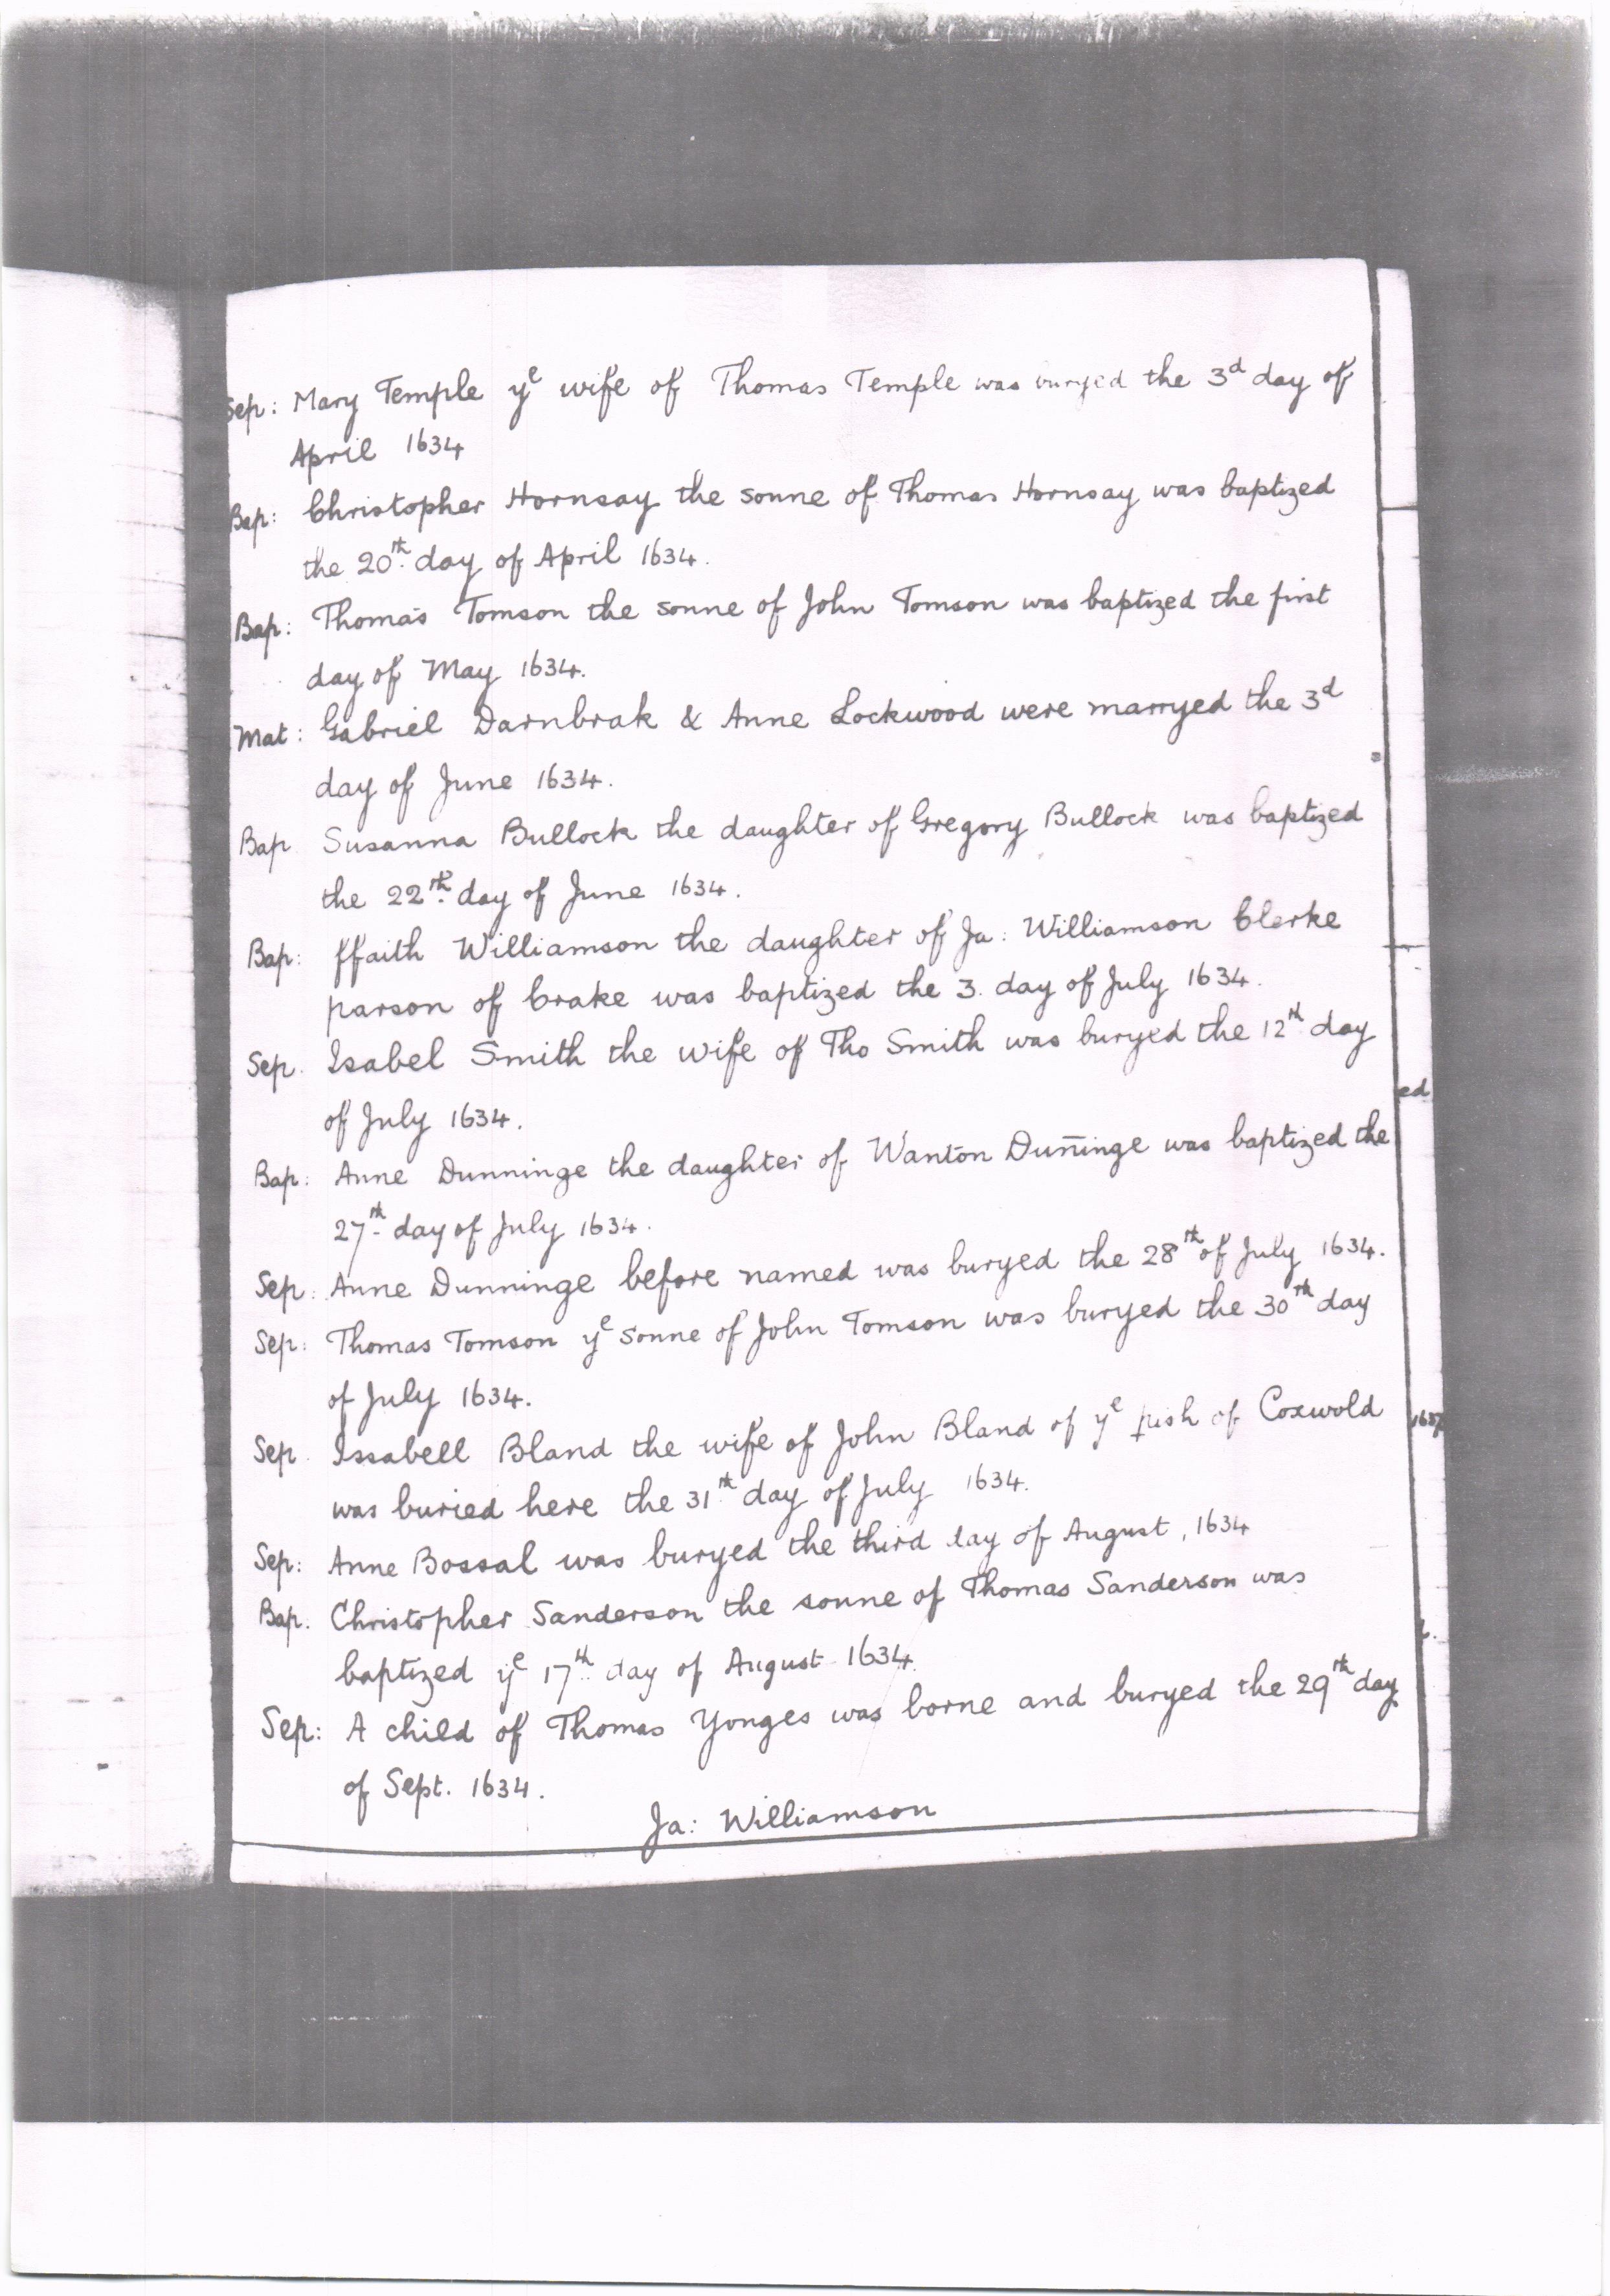 Sep: Mary Temple yᵉ wife of Thomas Temple was buryed the 3ᵈ day of
April 1634
Bap: Christopher Hornsay the sonne of Thomas Hornsay was baptized
the 20ᵗʰ day of April 1634.
Bap: Thomas Tomson the sonne of John Tomson was baptized the first
day of May 1634.
Mat: Gabriel Darnbrak & Anne Lockwood were marryed the 3ᵈ
day of June 1634.
Bap Susanna Bullock the daughter of Gregory Bullock was baptized
the 22ᵗʰ day of June 1634.
Bap: ffaith Williamson the daughter of Ja: Williamson Clerke
parson of Crake was baptized the 3. day of July 1634.
Sep. Isabel Smith the wife of Tho Smith was buryed the 12ᵗʰ day
of July 1634.
Bap: Anne Dunninge the daughter of Wanton Dun̄inge was baptized the
27ᵗʰ day of July 1634.
Sep: Anne Dunninge before named was buryed the 28ᵗʰ of July 1634.
Sep: Thomas Tomson yᵉ sonne of John Tomson was buryed the 30ᵗʰ day
of July 1634.
Sep. Issabell Bland the wife of John Bland of yᵉ pish of Coxwold
was buried here the 31ᵗʰ day of July 1634.
Sep: Anne Bossal was buryed the third day of August, 1634
Bap. Christopher Sanderson the sonne of Thomas Sanderson was
baptized yᵉ 17ᵗʰ day of August 1634.
Sep: A child of Thomas Yonges was borne and buryed the 29ᵗʰ day
of Sept. 1634.
Ja: Williamson
ed